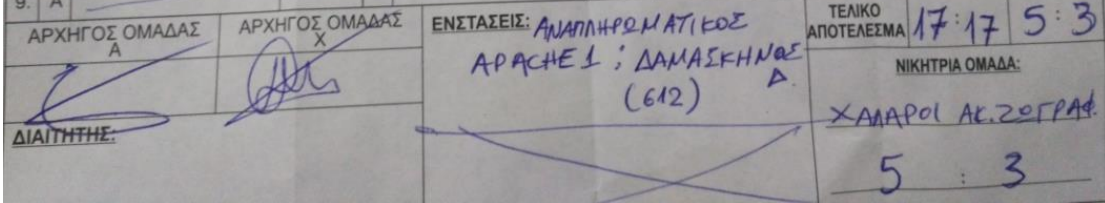 9. Α
ΑΡΧΗΓΟΣ ΟΜΑΔΑΣ
Α
ΑΡΧΗΓΟΣ ΟΜΑΔΑΣ
Χ
ΔΙΑΙΤΗΤΗΣ:
ΕΝΣΤΑΣΕΙΣ: ΑΝΑΠΛΗΡΩΜΑΤΙΚΟΣ
APACHE 1 : ΔΑΜΑΣΚΗΝΟΣ
Δ.
(612)
ΤΕΛΙΚΟ
ΑΠΟΤΕΛΕΣΜΑ 17:17 5:3
ΝΙΚΗΤΡΙΑ ΟΜΑΔΑ:
ΧΑΛΑΡΟΙ ΑΚ. ΖΟΓΡΑΦ.
5 : 3